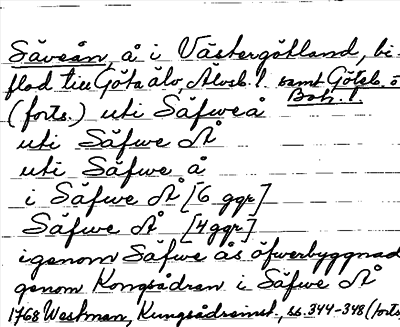 Säveån, å i Västergötland, bi-
flod till Göta älv, Älvsb. l. samt Göteb. o.
Boh. l.
(forts.) uti Säfweå
uti Säfwe Å
uti Säfwe å
i Säfwe Å [6 ggr]
Säfwe Å [4 ggr]
igenom Säfwe ås öfwerbyggnad
genom Kongsådran i Säfwe Å
1768 Westman, Kungsådreinst., ss. 344-348 (forts.